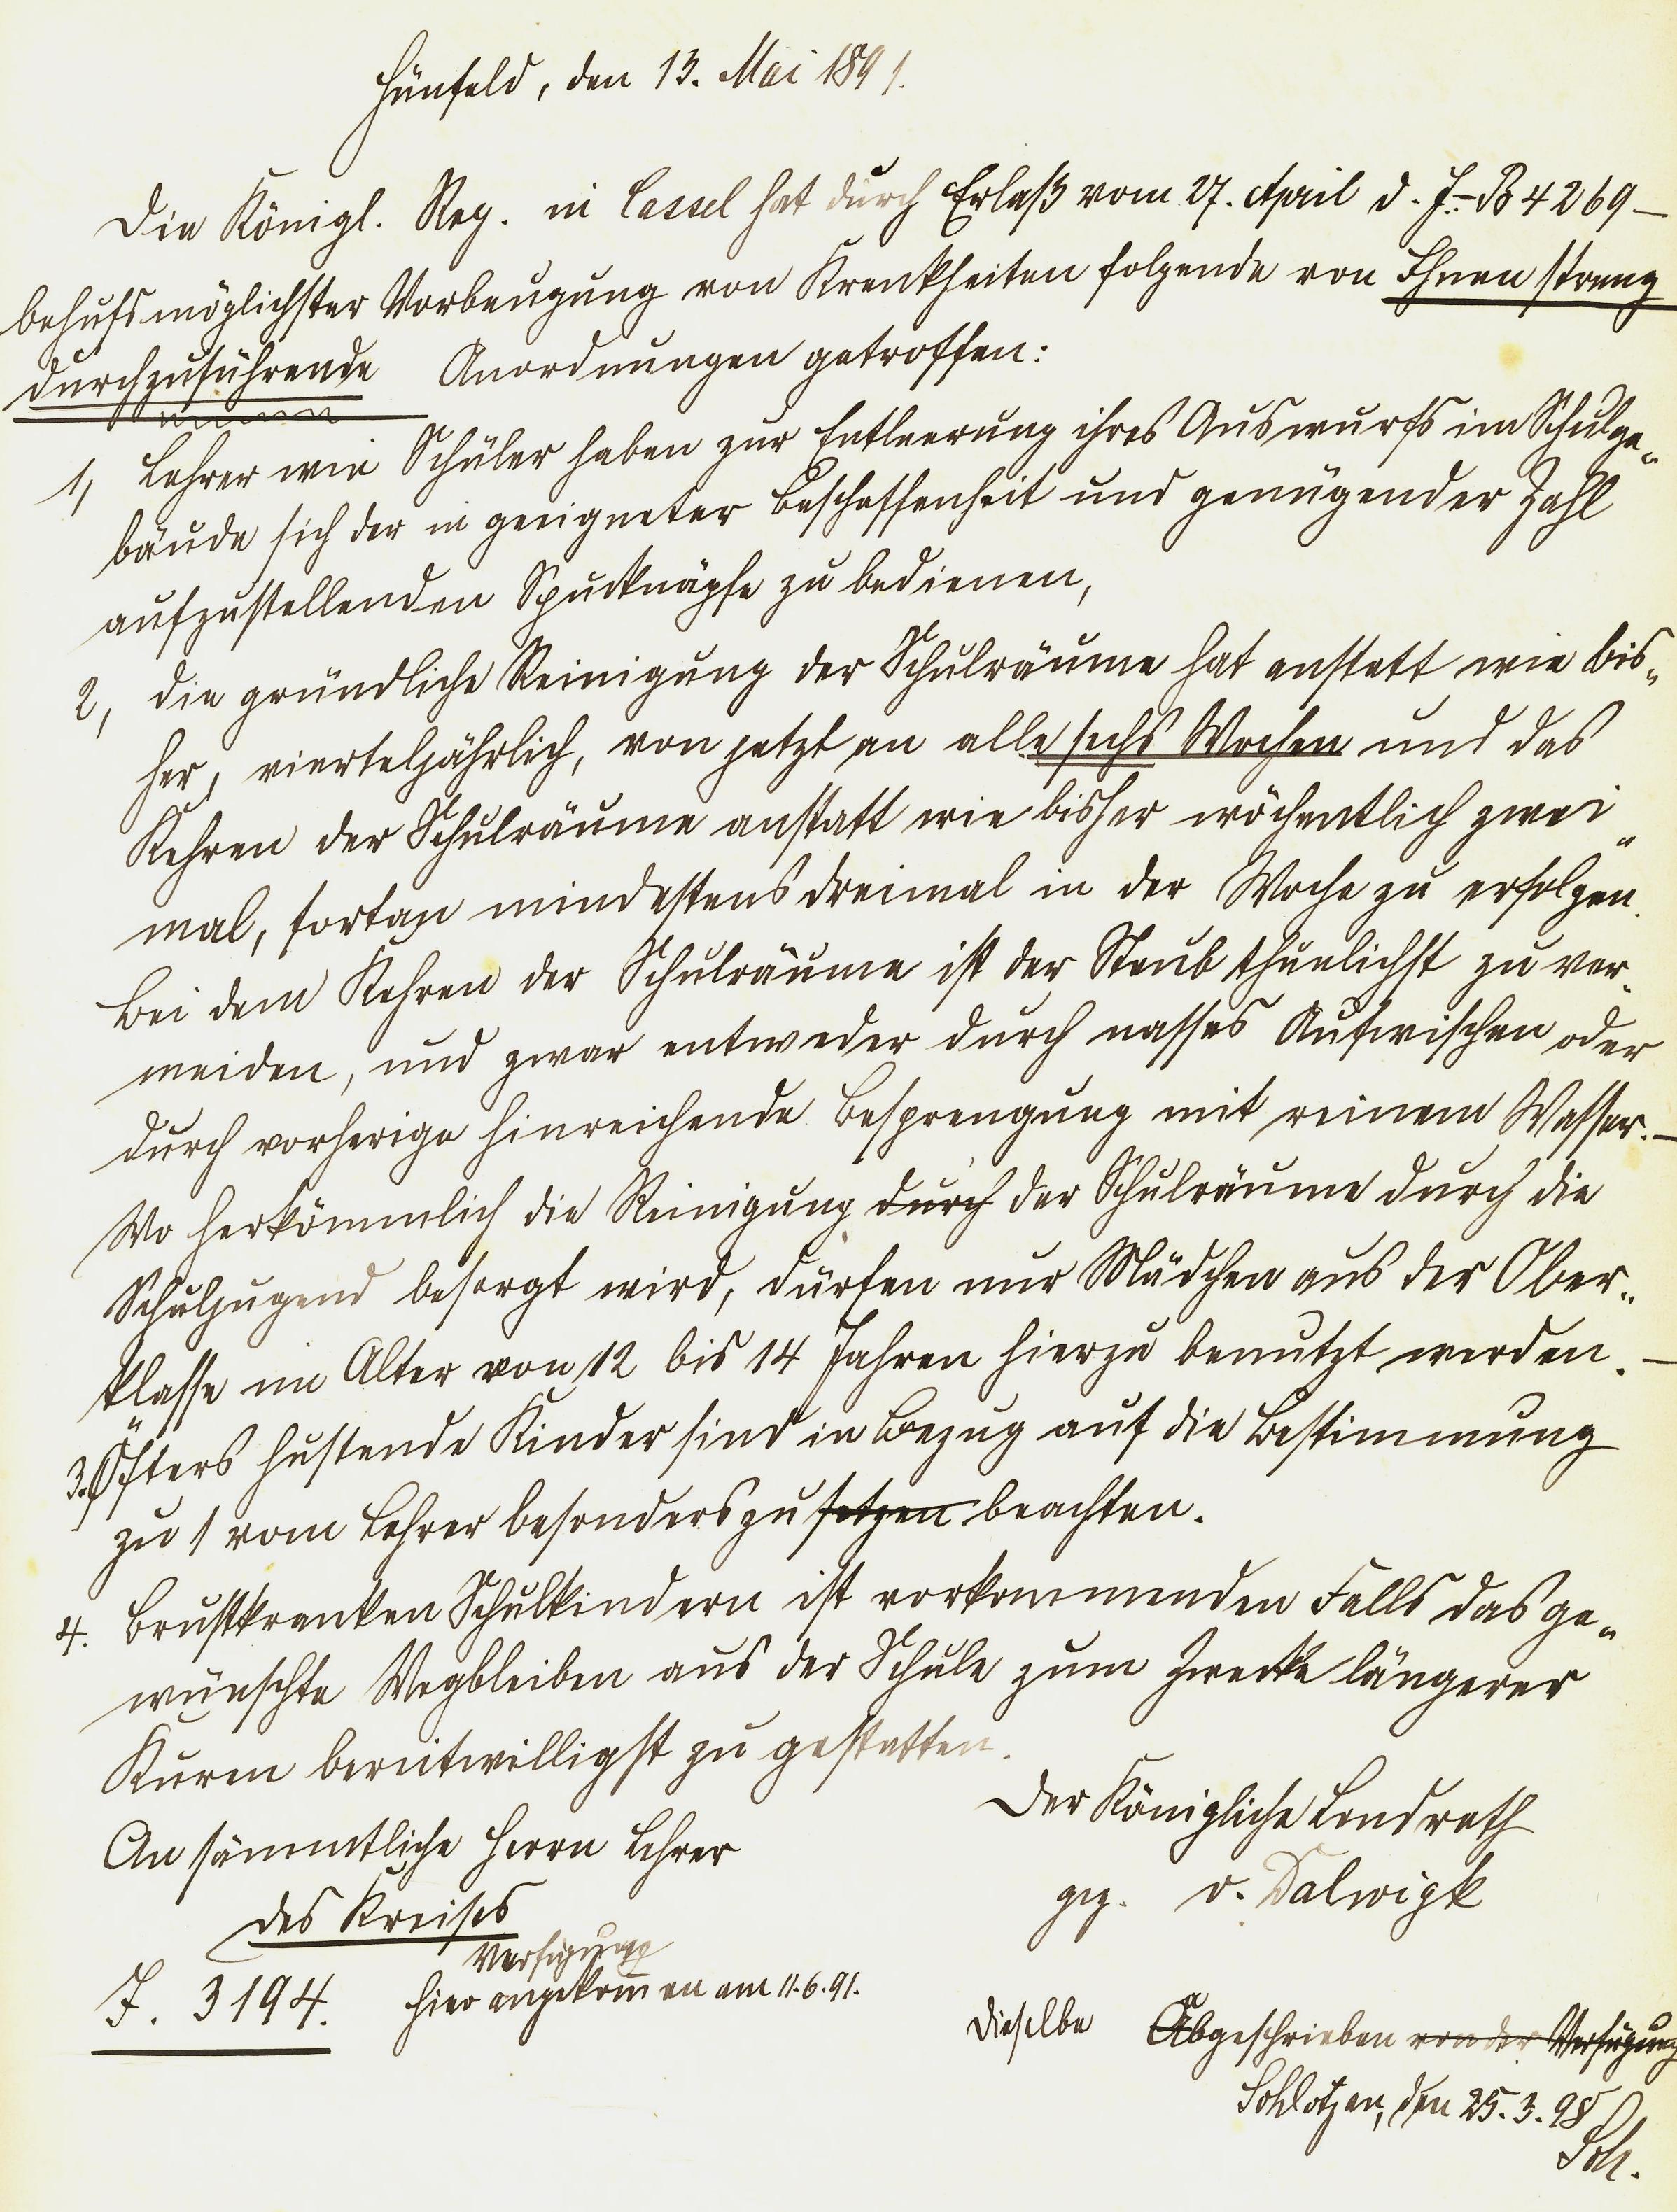 Hünfeld, den 13. Mai 1891.
Die Königl. Reg. in Cassel hat durch Erlaß vom 27. April d. J. – B 4269 –
behufs möglichster Vorbeugung von Krankheiten folgende von Ihnen streng
durchzuführende Anordnungen getroffen:
1, Lehrer wie Schüler haben zur Entleerung ihres Auswurfs im Schulge-
bäude sich der in geeigneter Beschaffenheit und genügender Zahl
aufzustellenden Spucknäpfe zu bedienen,
2, die gründliche Reinigung der Schulräume hat anstatt wie bis-
her, vierteljährlich, von jetzt an alle sechs Wochen und das
Kehren der Schulräume anstatt wie bisher wöchentlich zwei-
mal, fortan mindestens dreimal in der Woche zu erfolgen.
Bei dem Kehren der Schulräume ist der Staub thunlichst zu ver-
meiden, und zwar entweder durch nasses Aufwischen oder
durch vorherige hinreichende Besprengung mit reinem Wasser. –
Wo herkömmlich die Reinigung durch der Schulräume durch die
Schuljugend besorgt wird, dürfen nur Mädchen aus der Ober-
klasse im Alter von 12 bis 14 Jahren hierzu benutzt werden. –
3. Öfters hustende Kinder sind in Bezug auf die Bestimmung
zu 1 vom Lehrer besonders zu setzen beachten.
4. Brustkranken Schulkindern ist vorkommenden Falls das ge-
wünschte Wegbleiben aus der Schule zum Zwecke längerer
Kuren bereitwilligst zu gestatten.
Der Königliche Landrath
gez. v. Dalwigk
An sämmtliche Herrn Lehrer
des Kreises
J. 3194.
Verfügung
hier angekommen am 11.6.91.
Dieselbe Abgeschrieben von der Verfügung
Schlotzau, den 25.3.98
Sch.